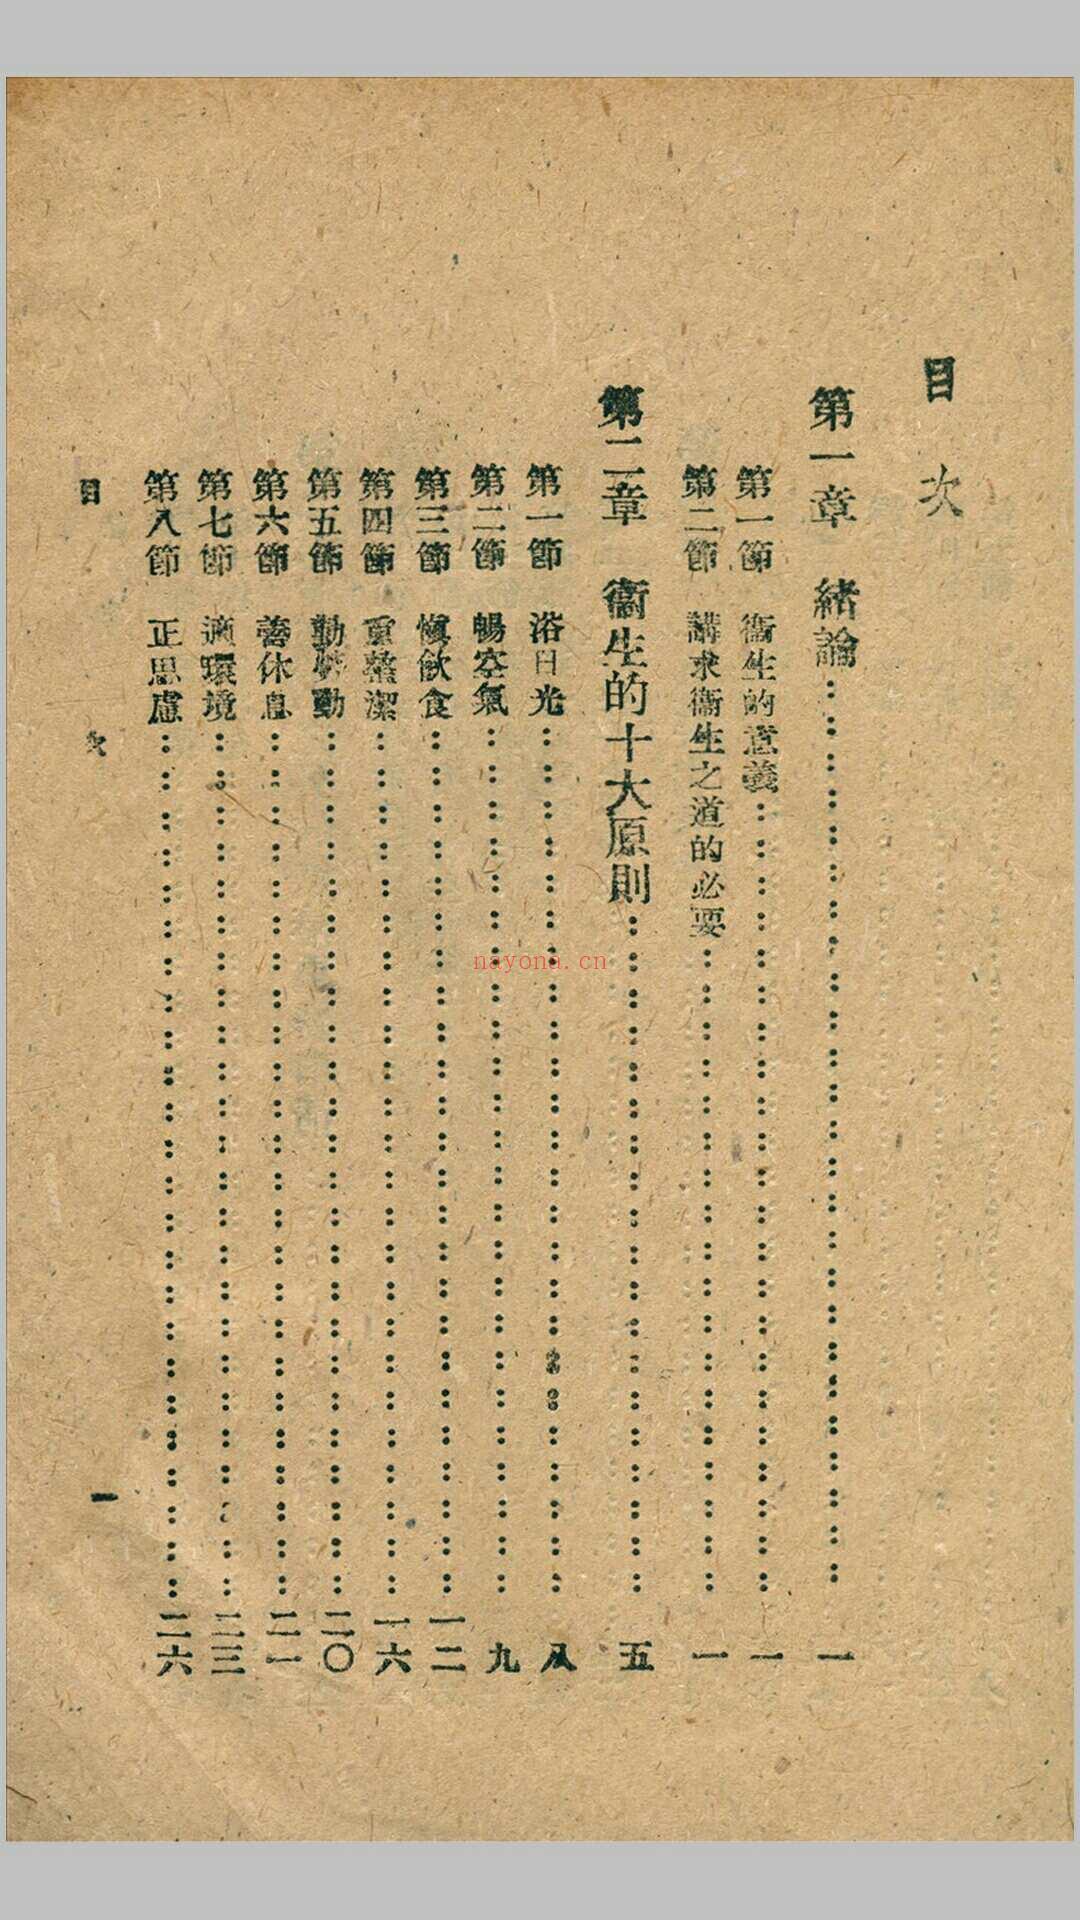 目次
第一章　緒論……………一
第一節　衞生的意義……………一
第二節　講求衞生之道的必要……………一
第二章　衞生的十大原則……………五
第一節　浴日光……………八
第二節　暢空氣……………九
第三節　愼飮食……………一二
第四節　重整潔……………一六
第五節　勤勞動……………二〇
第六節　善休息……………二一
第七節　適環境……………二三
第八節　正思慮……………二六
目次
一
nayona.cn